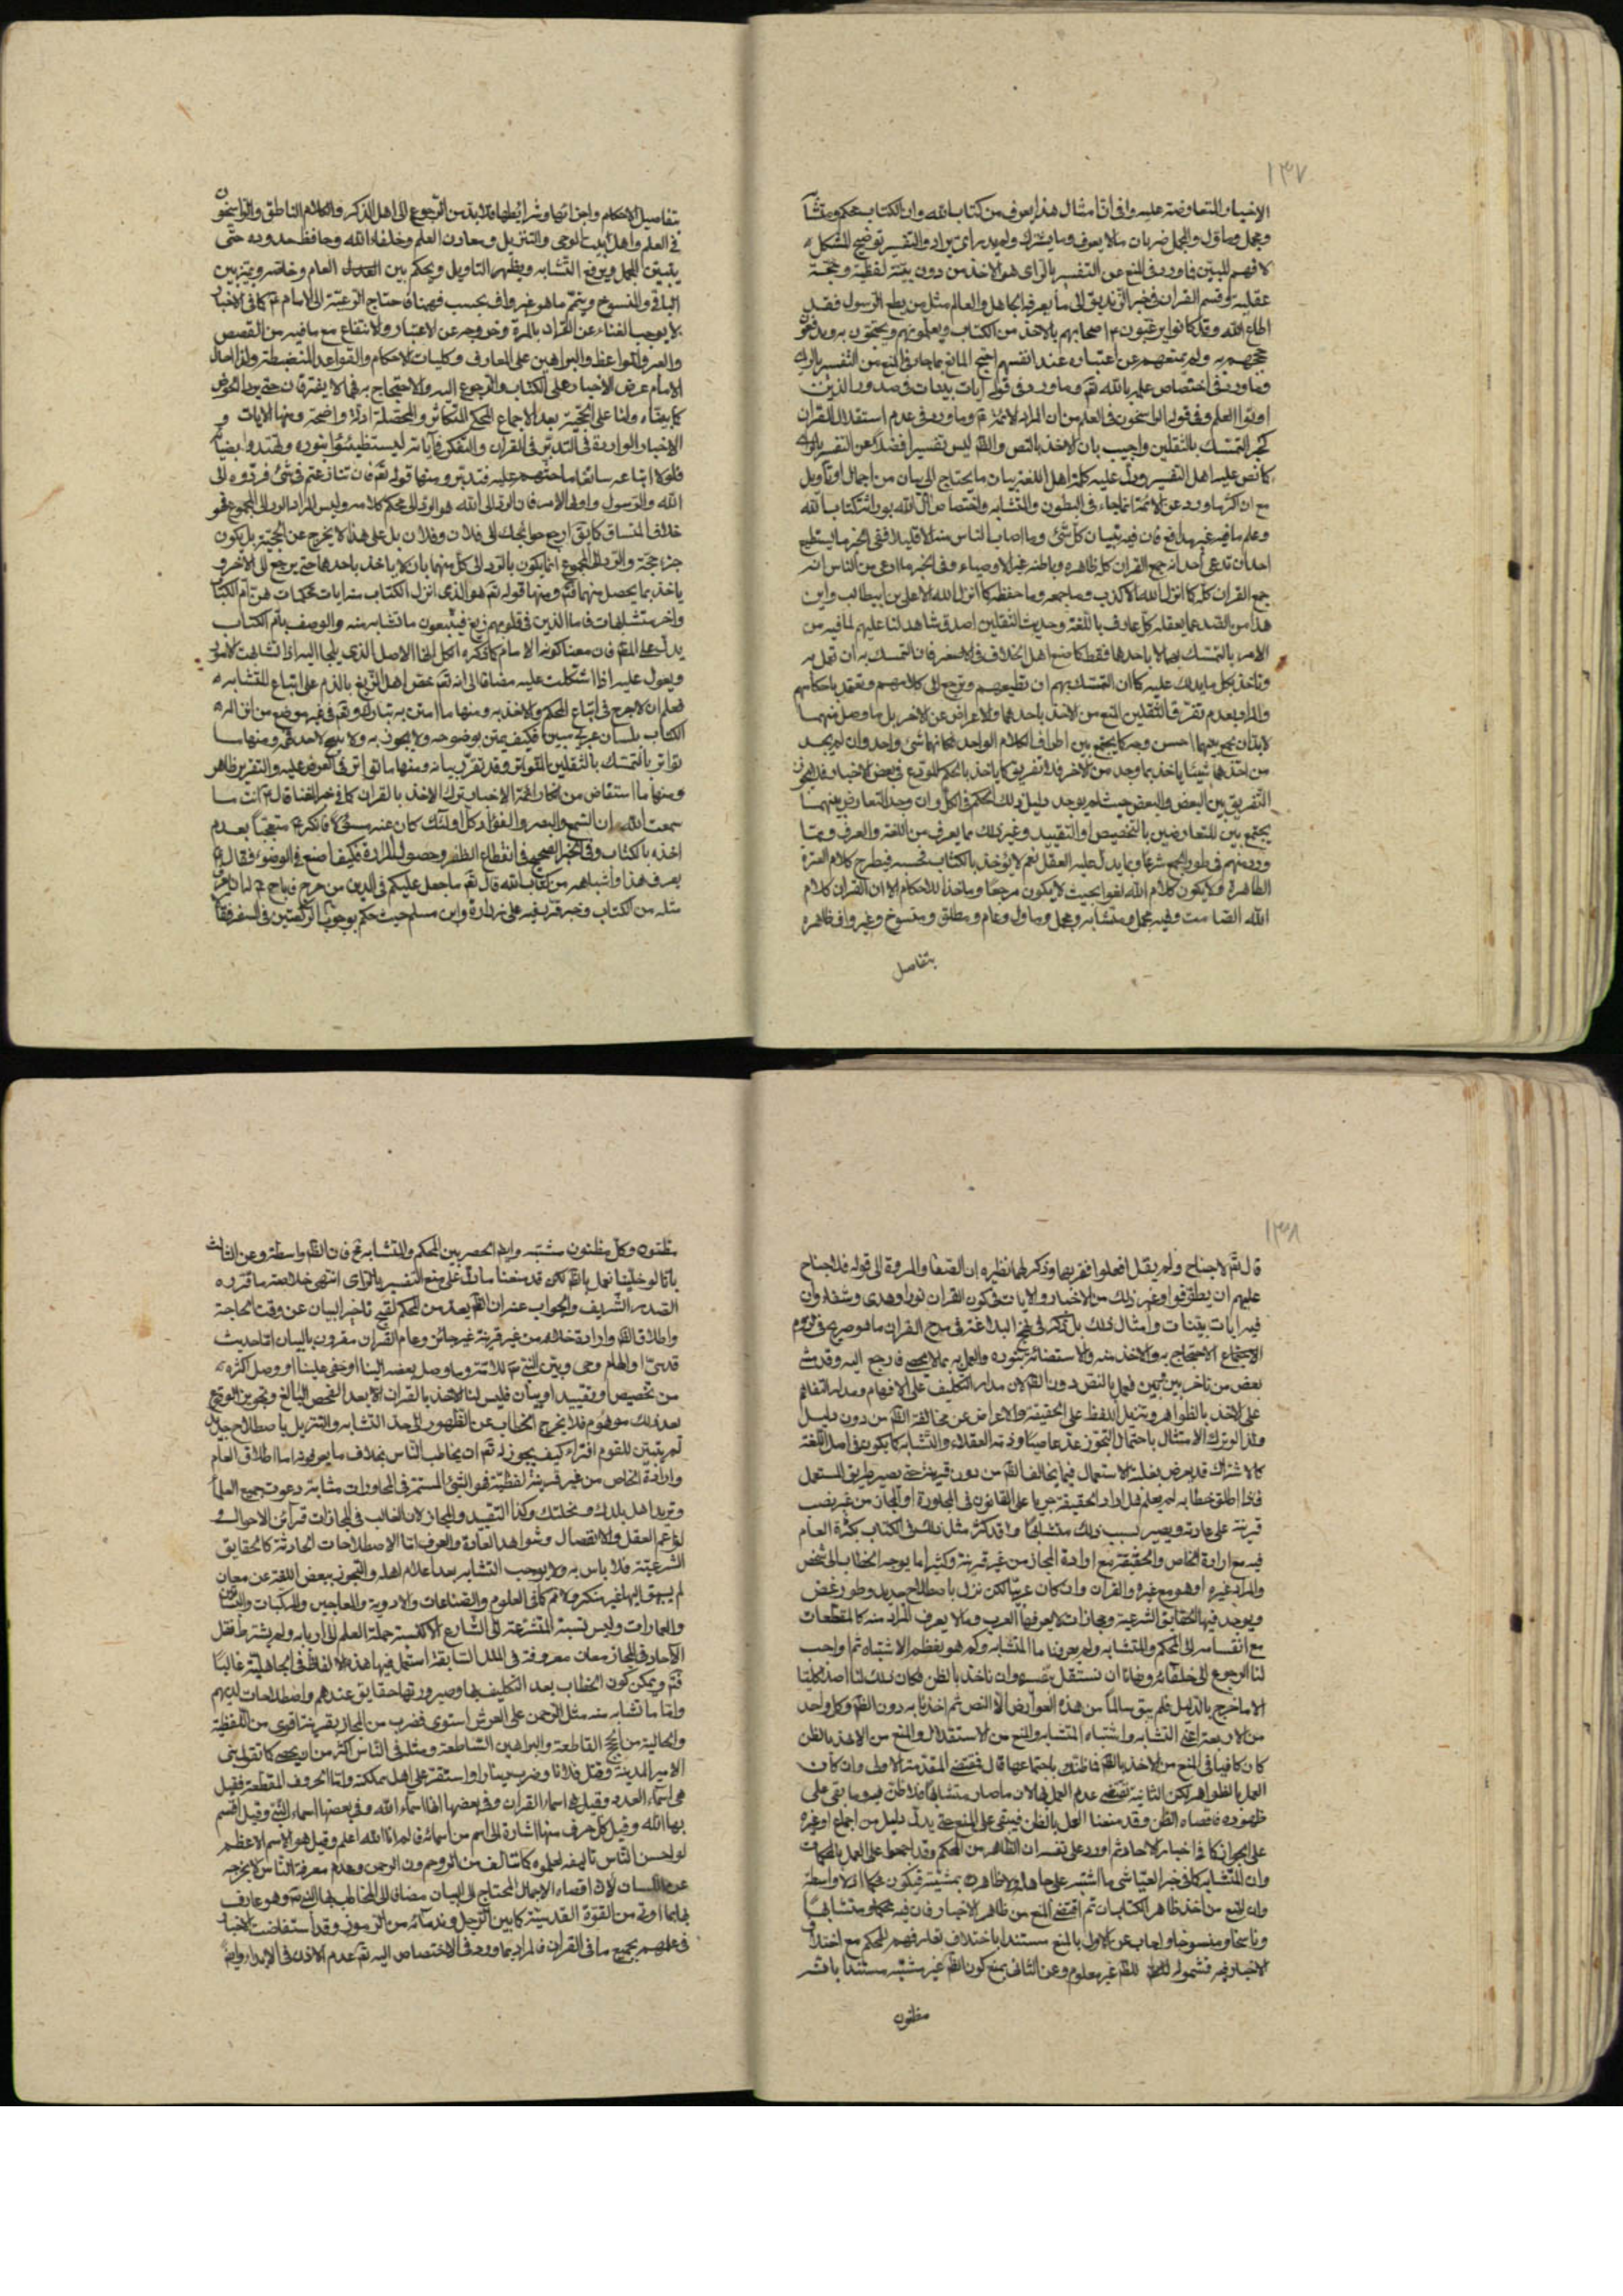 ١٣٧
الاخبار المتعارضة عليه وافى ان امثال هذا يعرف من كتاب الله وان الكتاب محكم ومتشابه
ومجمل وماول والمجمل ضربان ما لا يعرف وما يشترك ولم يدر اى يراد والتفسير توضيح المشكل
لا فهم المبين فما ورد فى المنع عن التفسير بالراى هو الاخذ من دون بينة لفظية وحجة
عقلية وقسم القران فى خبر الزنديق الى ما يعرفه الجاهل والعالم مثل من يطع الرسول فقد
اطاع الله وقد كانوا يرغبون اصحابهم بالاخذ من الكتاب ويعلمونهم ويحتجون به ويدفعون
حججهم به ولم يمنعهم عن اعتباره عند انفسهم احتج المانع بما جاء فى المنع من التفسير بالراى
وما ورد فى اختصاص علمه بالله تعم وما ورد فى قوله ايات بينات فى صدور الذين
اوتوا العلم وفى قوله الراسخون فى العلم من ان المراد الائمة وما ورد فى عدم استقلال القران
كخبر التمسك بالثقلين واجيب بان الاخذ بالنص والظ ليس تفسيرا فضلا عن التفسير بالراى
كما نص عليه اهل التفسير ودل عليه كلمة اهل اللغة ببيان ما يحتاج الى بيان من اجمال او تاويل
مع ان اكثر ما ورد عن الائمة انما جاء فى البطون والمتشابه واختصاص ال الله بوراثة كتاب الله
وعلم ما فيه غير مدافع فان فيه تبيان كل شئ وما اصاب الناس منه الا قليلا ففى الخبر ما يستطيع
احد ان تدعى انه جمع القران كله ظاهره وباطنه غير الاوصياء وفى الخبر ما ادعى من الناس انه
جمع القران كله كما انزل الله الا كذب وما جمعه وما حفظه كما انزل الله الا على بن ابيطالب واين
هذا من القدر مما يعقله كل عارف باللغة وحديث الثقلين اصدق شاهد لنا عليهم لما فيه من
الامر بالتمسك بهما لا باحدهما فقط كما صنع اهل الخلاف فى الاخر فان التمسك به ان تعمل به
وتاخذ بكل ما يدلك عليه كما ان التمسك بهم ان تطيعهم وترجع الى كلامهم وتعتقد باحكامهم
والمراد بعدم تفرق الثقلين المنع من الاخذ باحدهما والاعراض عن الاخر بل ما وصل منهما
لا بد ان يجمع بينهما احسن وجه كما يجمع بين اطراف الكلام الواحد لكانهما شئ واحد وان لم يجد
من احدهما شيئا ياخذ بما وجد من الاخر فلا تفريق كما ياخذ بالحكم المودع فى بعض الاخبار فلا يجوز
التفريق بين البعض والبعض حيث لم يوجد دليل ذلك الحكم فى الكل وان وجد التعارض بينهما
يجتمع بين المتعارضين بالتخصيص او التقييد وغير ذلك مما يعرف من اللغة والعرف ومما
ورد منهم فى طور الجمع شرعا وما يدل عليه العقل نعم لا يؤخذ بالكتاب فحسب فيطرح كلام العترة
الطاهرة ولا يكون كلام الله لغوا بحيث لا يكون مرجعا وماخذا للاحكام الا ان القران كلام
الله الصامت وفيه مجمل ومتشابه ومجمل وماول وعام ومطلق ومنسوخ وغير واف ظاهره
بتفاصيل
بتفاصيل الاحكام واجزائها وشرايطها فلا بد من الرجوع الى اهل الذكر والكلام الناطق والراسخون
فى العلم واهل البيت الوحى والتنزيل ومعادن العلم وخلفاء الله وحافظ حدوده حتى
يتبين المجمل ويرفع التشابه ويظهر التاويل ويحكم بين العام وخاصه ويتميز بين
الباقى والمنسوخ ويتم ما هو غير واف بحسب فهمنا فاحتاج الرعية الى الامام كما فى الاخبار
لا يوجب الغناء عن القران بالمرة وخروجه عن الاعتبار والانتفاع مع ما فيه من القصص
والعبر والمواعظ والبراهين على المعارف وكليات الاحكام والقواعد المنضبطة ولذا احال
الامام عرض الاخبار على الكتاب والرجوع اليه والاحتجاج به فهما لا يفترقان حتى يردا الحوض
كما بيناه ولنا على الحجية بعد الاجماع المحكى المتكاثر والمحصل ادلة واضحة ومنها الايات و
الاخبار الواردة فى التدبر فى القران والتفكر فى اياته ليستضيئوا بنوره ويهتدوا بضيائه
فلولا اتباعه سائغا ما حثهم عليه فتدبر ومنها قوله تعم فان تنازعتم فى شئ فردوه الى
الله والرسول واولى الامر فان الرد الى الله هو الرد الى محكم كلامه وليس المراد الرد الى المجموع فهو
خلاف المنساق كما يقال ارجع حوائجك الى فلان وفلان بل على هذا لا يخرج عن الحجية بل يكون
جزء حجة والرد الى المجموع انما يكون بالرد الى كل منهما بان لا ياخذ باحدهما حتى يرجع الى الاخر و
ياخذ بما يحصل منهما فتم ومنها قوله تعم هو الذى انزل الكتاب منه ايات محكمات هن ام الكتاب
واخر متشابهات فاما الذين فى قلوبهم زيغ فيتبعون ما تشابه منه والوصف بام الكتاب
يدل على المقم فان معنا كونه الامام كما ذكره الكل انها الاصل الذى يلجا اليه اذا تشابهت الامور
ويعول عليه اذا اشكلت عليه مضافا الى انه تعم خص اهل الزيغ بالذم على اتباع المتشابه
فعلم ان لا حرج فى اتباع المحكم والاخذ به ومنها ما امتن به تبارك وتعم فى غير موضع من انزاله
الكتاب بلسان عربى مبين فكيف يمتن بوضوحه ولا يجوز به ولا يبيح لاحد فهمه ومنها ما
تواتر بالتمسك بالثقلين المتواتر وقد تقرر بيانه ومنها ما تواتر فى العرض عليه والتقرير ظاهر
ومنها ما استفاض من انكار ائمة الاخبار ترك الاخذ بالقران كما فى خبر الغناء قال له انت ما
سمعت الله ان السمع والبصر والفؤاد كل اولئك كان عنه مسئولا فانكره متعجبا بعدم
اخذه بالكتاب وفى الخبر الصحيح فى انقطاع الظفر وحصول المرارة فكيف اصنع فى الوضوء فقال
يعرف هذا واشباهه من كتاب الله قال تعم ما جعل عليكم فى الدين من حرج فباح لنا
مثله من الكتاب وخبر قرب فيه على زرارة وابن مسلم حيث حكم بوجوب الركعتين فى السفر فقالا
١٣٨
قال تعم لا جناح ولم يقل افعلوا فقر بهما وذكر لهما نظيره ان الصفا والمروة الى قوله فلا جناح
عليهم ان يطوفوا وغير ذلك من الاخبار والايات فى كون القران نورا وهدى وشفاء وان
فيه ايات بينات وامثال ذلك بل تكثر فى نهج البلاغة فى مدح القران ما هو صريح فى لزوم
الاجتماع الاحتجاج به والاخذ منه والاستضائة بنوره والعمل به بما لا يحصى فارجع اليه وقد مشى
بعض من تاخر بين بين فعمل بالنص دون الظ لان مدار التكليف على الافهام ومدار التفاهم
على الاخذ بالظواهر وتنزيل اللفظ على الحقيقة والاعراض عن مخالفة الظ من دون دليل
ولذا لو ترك الامتثال باحتمال التجوز عد عاصيا وذمه العقلاء والتشابه كما يكون فى اصل اللغة
كالاشتراك قد يعرض بغلبة الاستعمال فيما يخالف الظ من دون قرينة حتى يصير طريق المستعمل
فاذا اطلق خطابه لم يعلم هل اراد الحقيقة جريا على القانون فى المحاورة او المجاز من غير نصب
قرينة على عادته ويصير بسبب ذلك متشابها وقد كثر مثل ذلك فى الكتاب بكثرة العام
فيه مع ارادة الخاص والحقيقة مع ارادة المجاز من غير قرينة وكثيرا ما يوجه الخطاب الى شخص
والمراد غيره او هو مع غيره والقران وان كان عربيا لكن نزل باصطلاح جديد وطور غض
ويوجد فيها الحقايق الشرعية ومجازات لا يعرفها العرب وما لا يعرف المراد منه كالمقطعات
مع انقسامه الى المحكم والمتشابه ولم يعرفنا ما المتشابه وكم هو يفظم الاشتباه ثم اوجب
لنا الرجوع الى خلفائه ونهانا ان نستقل بنفسه وان ناخذ بالظن فكان ذلك لنا اصلا كليا
الا ما خرج بالدليل فلم يبق سالما من هذه العوارض الا النص ثم اخذنا به دون الظ وكل واحد
من الاربعة اعنى التشابه واشتباه المتشابه والمنع من الاستقلال والمنع من الاخذ بالظن
كان كافيا فى المنع من الاخذ بالظ فما ظنك باجتماعها قال فمقتضى المقدمة الاولى وان كان
العمل بالظواهر لكن الثانية تقتضى عدم العمل بها لان ما صار متشابها فلا ظن فيه وما بقى على
ظهوره فاقصاه الظن وقد منعنا العمل بالظن فيبقى على المنع حتى يدل دليل من اجماع او غيره
على الجواز كما فى اخبار الاحاد ثم اورد على نفسه ان الظاهر من المحكم وقد اجمعوا على العمل بالمحكمات
وان المتشابه كما فى خبر العياشى ما اشتبه على جاهله والظاهر ليس بمشتبه فيكون محكما اذ لا واسطة
وان المنع من اخذ ظاهر الكتاب ان تم اقتضى المنع من ظاهر الاخبار فان فيه محكما ومتشابها
وناسخا ومنسوخا واجاب عن الاول بالمنع مستندا باختلاف تعاريفهم للمحكم مع اختلاف
الاخبار فيه فشموله للظ غير معلوم وعن الثانى بمنع كون الظ غير مشتبه مستندا بانه
مظنون
مظنون وكل مظنون مشتبه وايضا الحصر بين المحكم والمتشابه مم فان الظ واسطة وعن الثالث
بانا لو خلينا نعمل بالظ لكن قد منعنا مما دل على منع التفسير بالراى انتهى خلاصة ما قرره
الصدر الشريف والجواب عنه ان الظ يعد من المحكم لقبح تاخير البيان عن وقت الحاجة
واطلاق الظ وارادة خلافه من غير قرينة غير جائز وعام القران مقرون بالبيان اما حديث
قدسى او الهام وحى وبين النبى للائمة وما وصل بعضه الينا او خفى علينا او وصل اكثره
من تخصيص او تقييد او بيان فليس لنا الاخذ بالقران الا بعد الفحص البالغ وتجويز الوقوع
بعد ذلك موهوم فلا يخرج الخطاب عن الظهور الى حد التشابه والتنزيل باصطلاح جديد
لم يتبين للقوم افتراء كيف يجوز له تعم ان يخاطب الناس بخلاف ما يعرفونه اما اطلاق العام
وارادة الخاص من غير قرينة لفظية فهو الشئ المستمر فى المحاورات مشابه دعوت جميع العلماء
وتريد اهل بلدك ومحلتك وكذا التقييد والمجاز لان الغالب فى المجازات قرائن الاحوال و
لوازم العقل والانفصال وشواهد العادة والعرف اما الاصطلاحات الحادثة كالحقايق
الشرعية فلا باس به ولا يوجب التشابه بعد اعلام اهله والتجوز ببعض اللغة عن معان
لم يسبق اليها غير منكر ولا مم كما فى العلوم والصناعات والادوية والمعاجين والمركبات
والعمارات وليس نسبة المتشرعة الى الشارع الا كنسبة حملة العلم الى اربابه ولم يشترط نقل
الآحاد فى المجاز معان معروفة فى الملل السابقة استعمل فيها هذه الالفاظ فى الجاهلية غالبا
فتم ويمكن كون الخطاب بعد التكليف بها وصيرورتها حقايق عندهم واصطلاحات لديهم
واما ما تشابه منه مثل الرحمن على العرش استوى فضرب من المجاز بقرينة اقوى من اللفظية
والحالية من الحجج القاطعة والبراهين الساطعة ومثله فى الناس اكثر من ان يحصى كما تقول بنى
الامير المدينة وقتل فلانا وضرب دينارا واستقر على اهل مملكته واما الحروف المقطعة فقيل
هى اسماء العدد وقيل هى اسماء القران وفى بعضها انها اسماء الله وفى بعضها اسماء النبى وقيل اقسم
بها الله وقيل كل حرف منها اشارة الى اسم من اسمائه فالم انا الله اعلم وقيل هو الاسم الاعظم
لو احسن الناس تاليفه لعلموه كما تالف من الروحم ون الرحمن وعدم معرفة الناس لا يخرجه
عن اللسان لان اقصاه الاجمال المحتاج الى البيان مضافا الى المخاطب بها النبى وهو عارف
بها بما اوتى من القوة القدسية كما بين الرجل وندمائه من الرموز وقد استفاضت الاخبار
فى علمهم بجميع ما فى القران فالمراد بما ورد فى الاختصاص اليه تعم عدم الاذن فى الابداء وايضا